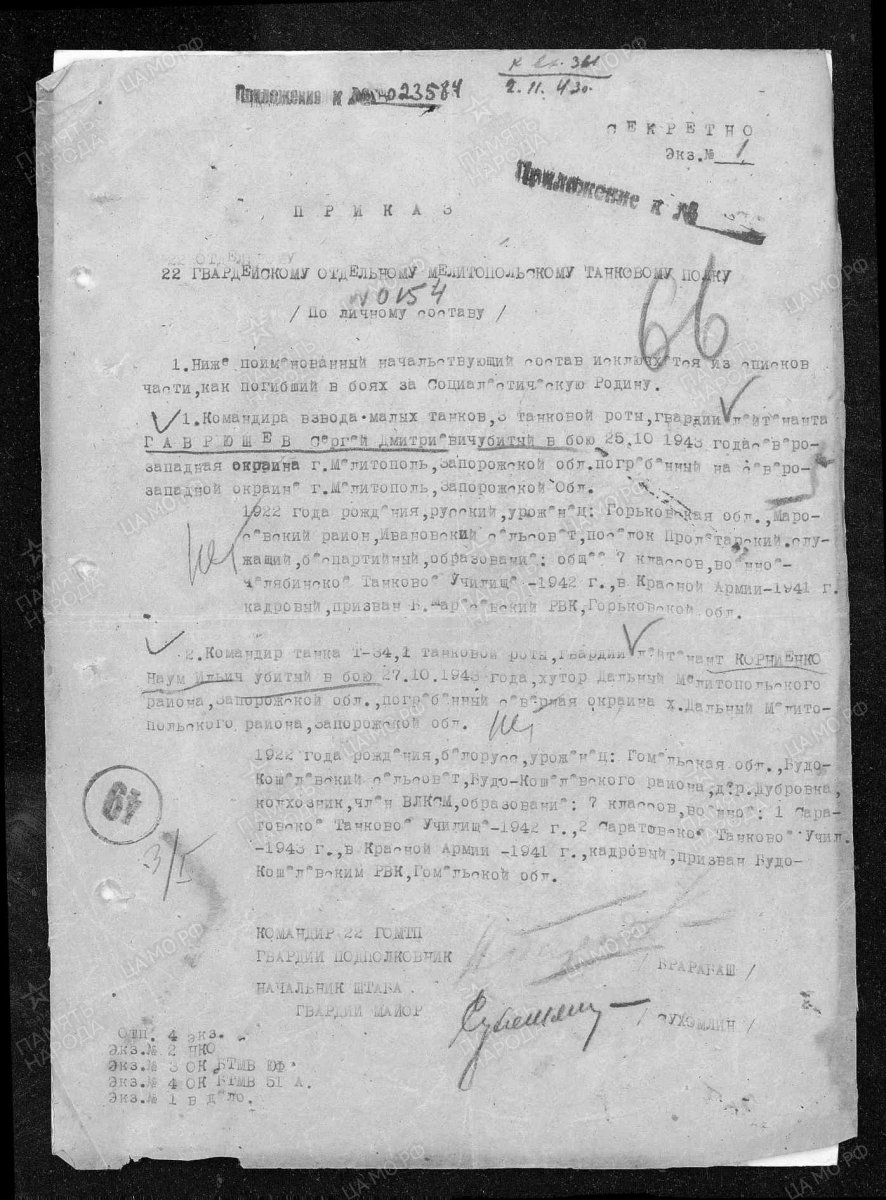 к вх. 361
2.11.43г.
Приложение к 023584
СЕКРЕТНО
Экз.№ 1
Приложение к №
П Р И К А З
22 ГВАРДЕЙСКОМУ ОТДЕЛЬНОМУ МЕЛИТОПОЛЬСКОМУ ТАНКОВОМУ ПОЛКУ
№ 0154
/ По личному составу /
66
1.Ниже поименованный начальствующий состав исключается из списков
части,как погибший в боях за Социалистическую Родину.
1.Командира взвода малых танков,3 танковой роты,гвардии лейтенанта
ГАВРЮШЕВ Сергей Дмитриевич убитый в бою 25.10 1943 года северо-
западная окраина г.Мелитополь,Запорожской обл.погребенный на северо-
западной окраине г.Мелитополь,Запорожской Обл.
1922 года рождения,русский,уроженец: Горьковская обл.,Маро-
севский район,Ивановский сельсовет,поселок Пролетарский.слу-
жащий,беспартийный,образование: общее 7 классов,военное-
Челябинское Танковое Училище -1942 г.,в Красной Армии-1941 г.
кадровый,призван Б.Маресевский РВК,Горьковской обл.
2.Командир танка Т-34,1 танковой роты,гвардии лейтенант КОРНИЕНКО
Наум Ильич убитый в бою 27.10.1943 года,хутор Дальный Мелитопольского
района,Запорожской обл.,погребенный северная окраина х.Дальный Мелито-
польского района,Запорожской обл.
1922 года рождения,белорусс,уроженец: Гомельская обл.,Будо-
Кошелевский сельсовет,Будо-Кошелевского района,дер.Дубровка,
колхозник,член ВЛКСМ,образование: 7 классов,военное: 1 Сара-
товское Танковое Училище-1942 г.,2 Саратовское Танковое Учил.
-1943 г.,в Красной Армии -1941 г.,кадровый,призван Будо-
Кошелевским РВК,Гомельской обл.
61
3/I
КОМАНДИР 22 ГОМТП
ГВАРДИИ ПОДПОЛКОВНИК / БРАРАБАШ /
НАЧАЛЬНИК ШТАБА
ГВАРДИИ МАЙОР / СУХОМЛИН /
Отп. 4 экз.
Экз.№ 2 НКО
Экз.№ 3 ОК БТМВ ЮФ
Экз.№ 4 ОК БТМВ 51 А.
Экз.№ 1 в дело.
ПАМЯТЬ НАРОДА
ЦАМО.РФ